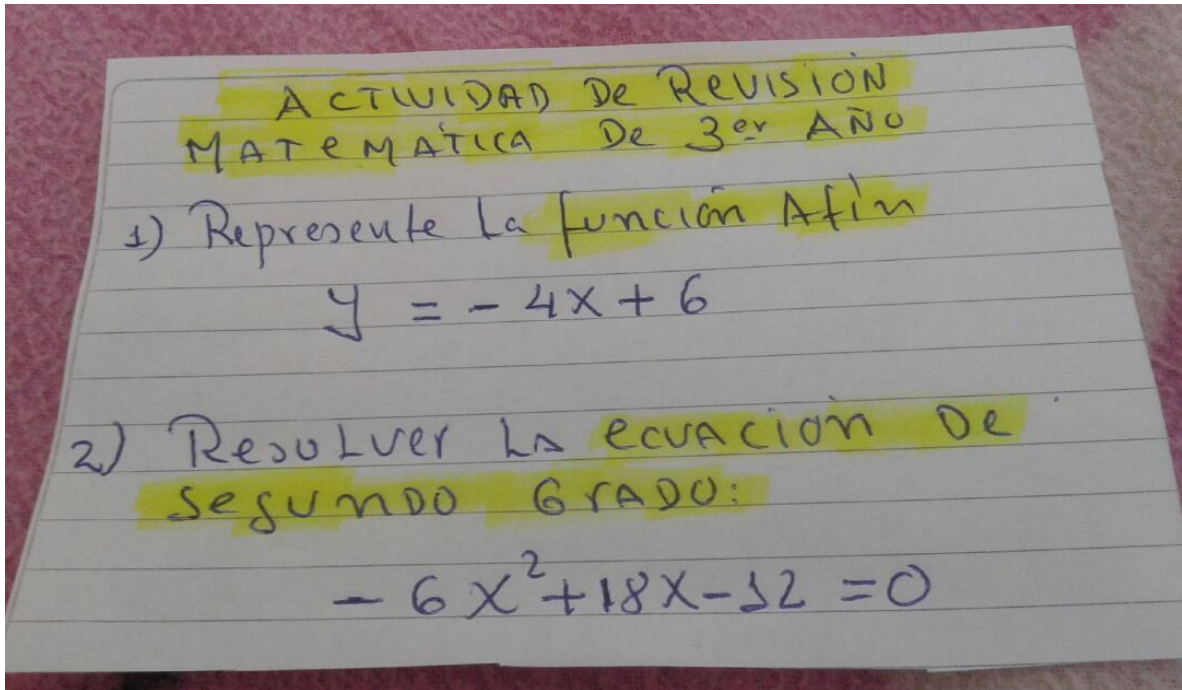 ACTIVIDAD De REVISIÓN
MATeMÁTICA De 3er AÑO
1) Represente La función Afín
y = - 4x + 6
2) ResoLver LA ecuación De
segundo GrADO:
- 6x²+18x-12 =0